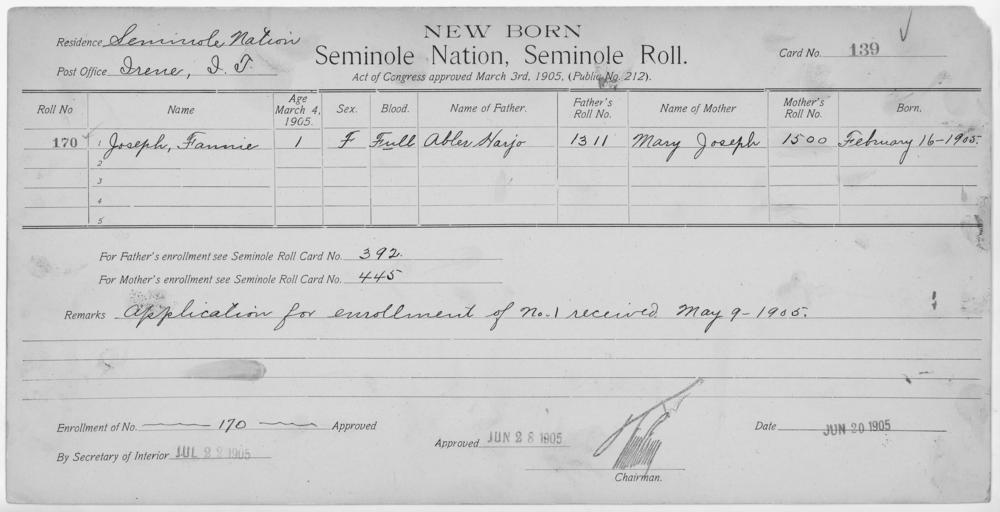 NEW BORN
Seminole Nation, Seminole Roll.
Act of Congress approved March 3rd, 1905, (Public No. 212).
Residence Seminole Nation
Post Office Irene, I. T.
Card No. 139
Roll No Name Age March 4, 1905. Sex. Blood. Name of Father. Father's Roll No. Name of Mother Mother's Roll No. Born.
170 1 Joseph, Fannie 1 F Full Abler Harjo 1311 Mary Joseph 1500 February 16-1905.
2
3
4
5
For Father's enrollment see Seminole Roll Card No. 392.
For Mother's enrollment see Seminole Roll Card No. 445
Remarks Application for enrollment of No. 1 received May 9-1905.
Enrollment of No. 170 Approved
By Secretary of Interior JUL 22 1905
Approved JUN 28 1905
Chairman.
Date JUN 20 1905